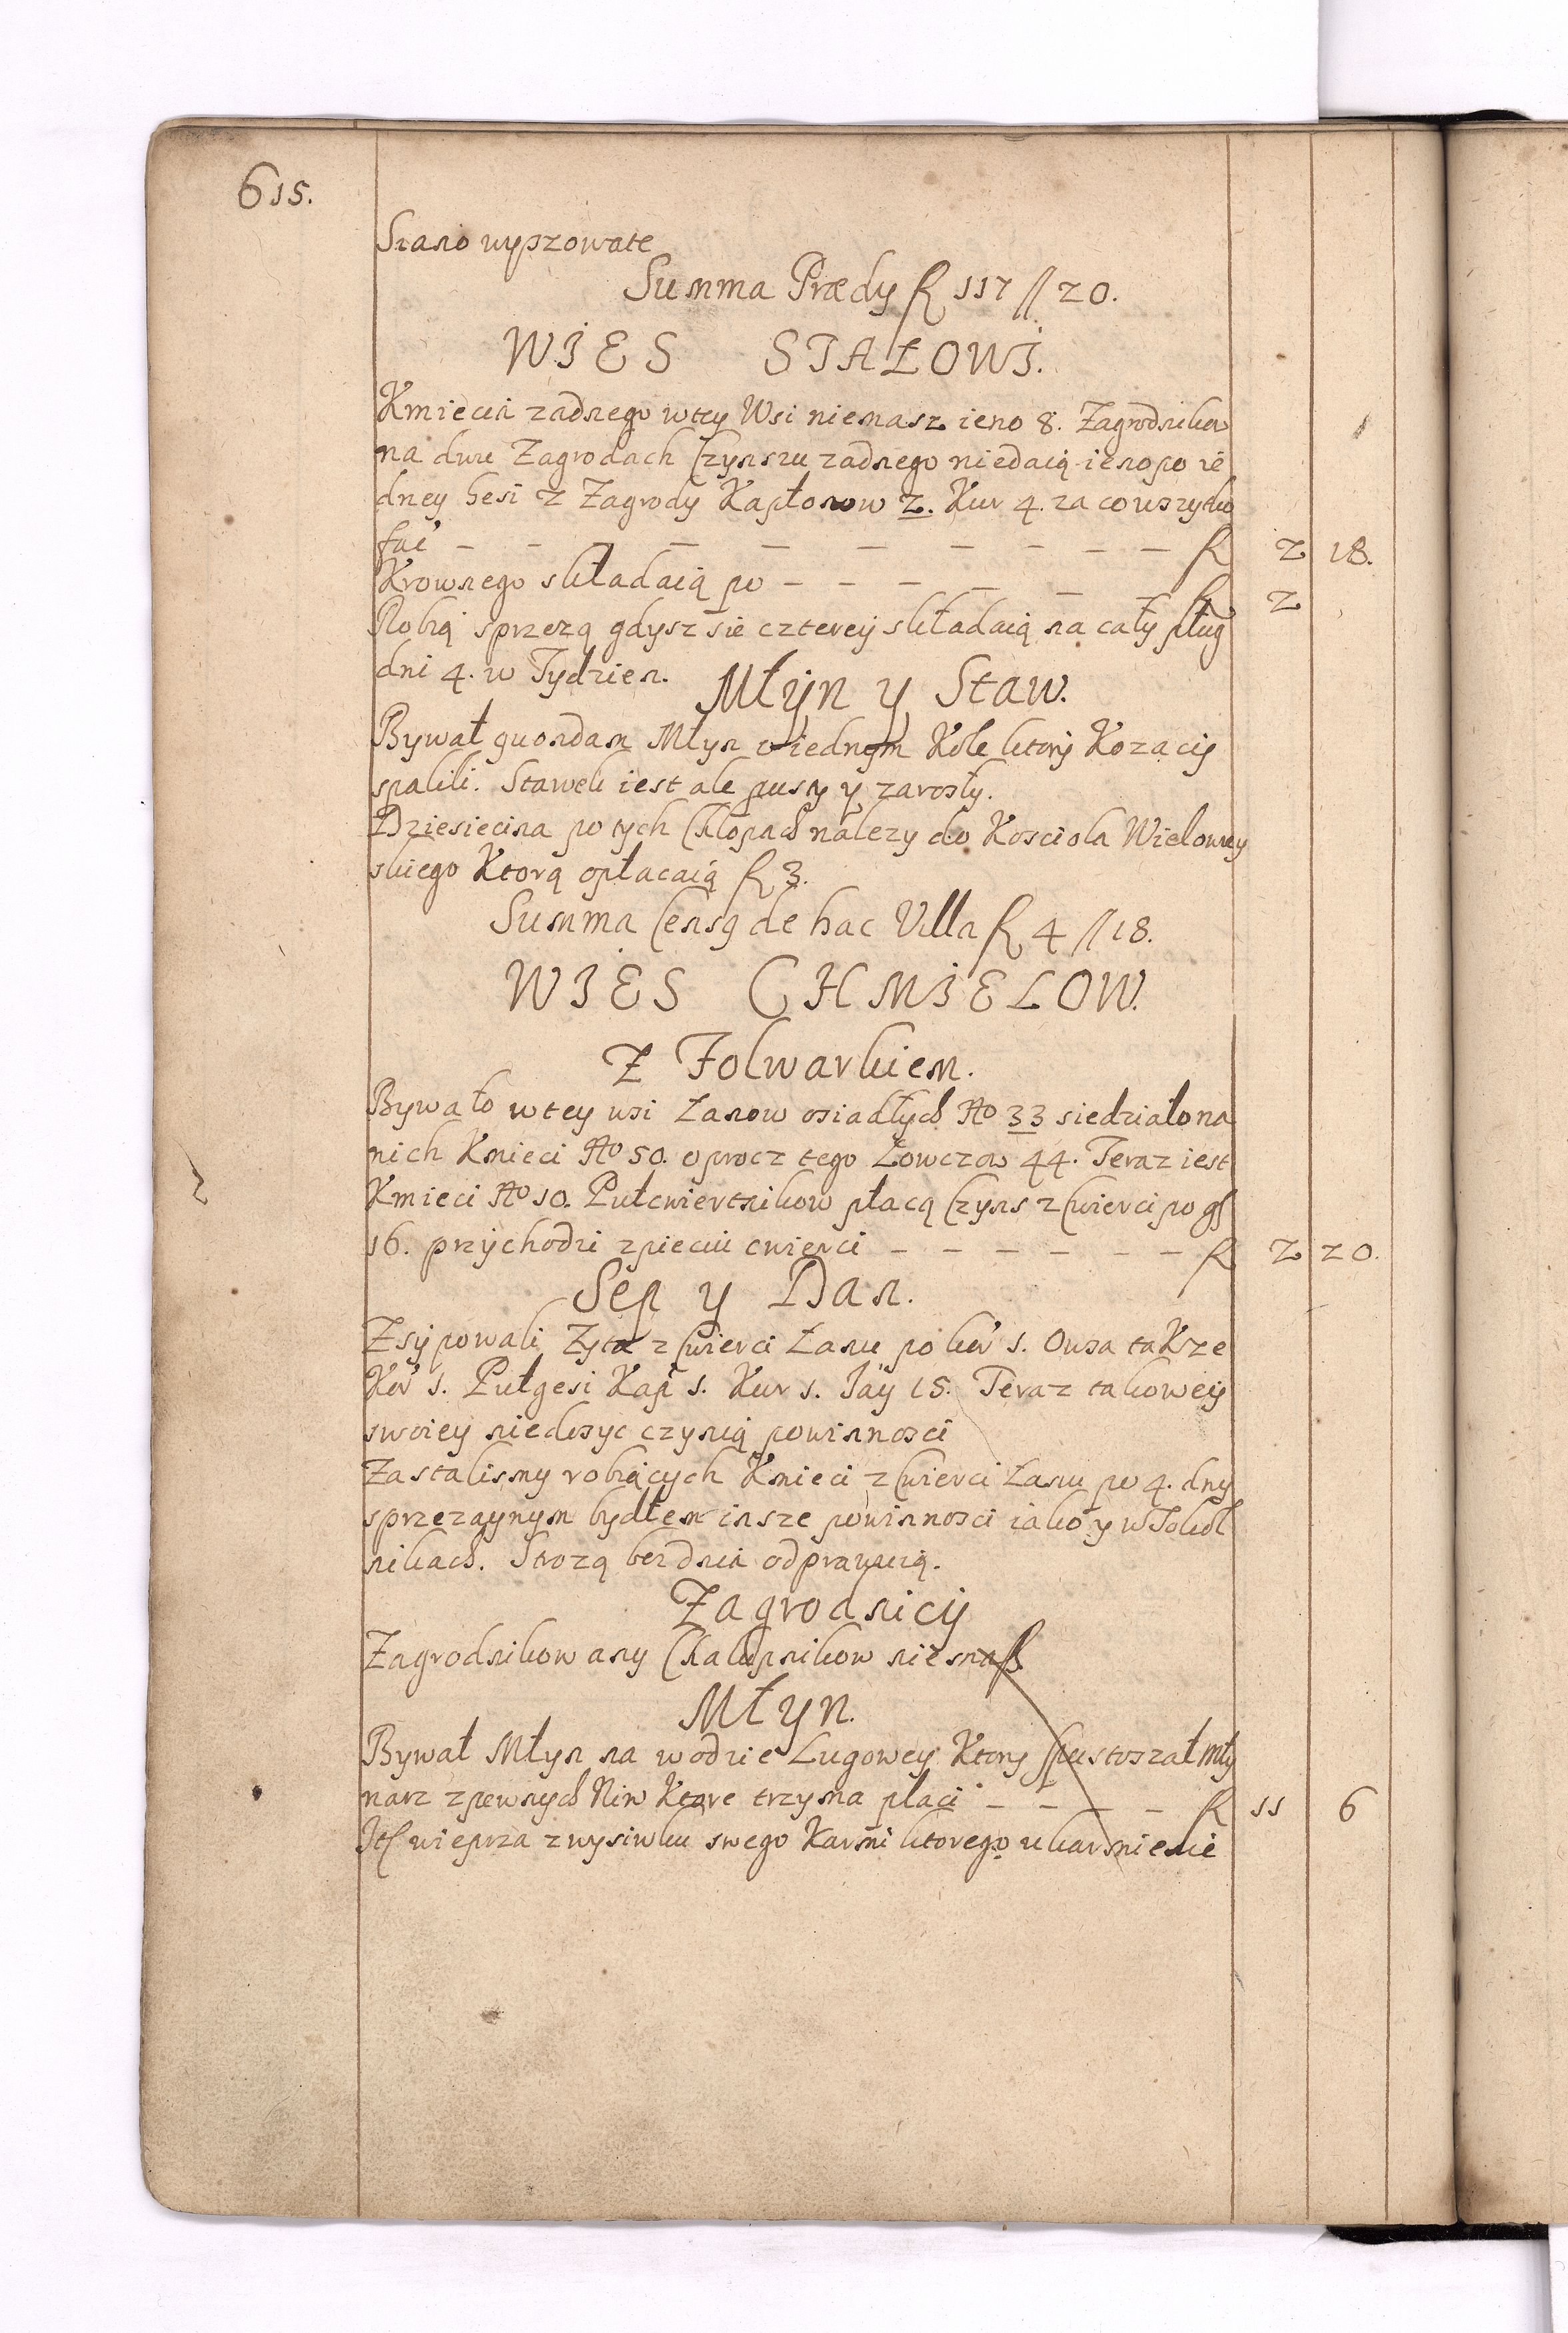 615.
Siano wyprzowate
Summa Prædy fl 117 // 20.
WIES STALOWI.
Kmiecia zadnego wtey Wsi niemasz ieno 8. Zagrodnikow
na dwu Zagrodach Czynszu zadnego niedaią ieno po ie
dney Gesi z Zagrody Kapłonow 2. Kur 4. za co wszytko
fac' — — — — — — — — — — fl 2 18.
Krownego składaią po — — — — — — fl 2
Robią sprzezą gdysz sie czterey składaią na cały pług
dni 4. w Tydzien.
Młyn y Staw.
Bywał quondam Młyn o iednym Kole ktory Kozacy
spalili. Stawek iest ale pusty y zarosły.
Dziesiecina po tych Chłopach nalezy do Kosciola Wielowey
skiego Ktorą opłacaią fl 3.
Summa Censq de hac Villa fl 4 // 18.
WIES CHMIELOW.
Z Folwarkiem.
Bywało wtey wsi Łanow osiadłych No 33 siedziało na
nich Kmieci No 50. oprocz tego Łowczow 44. Teraz iest
Kmieci No 10. Pułcwiertnikow płacą Czyns z Cwierci po gr
16. przychodzi z pieciu cwierci — — — — — — fl 2 20.
Sep y Dan.
Zsypowali Zyta z Cwierci Łanu po kor' 1. Owsa takze
Kor' 1. Pułgesi Kap 1. Kur 1. Jay 15. Teraz takowey
swoiey niedosyc czynią powinnosci
Zastalismy robiących Kmieci z Cwierci Łanu po 4. dny
sprzezaynym bydłem insze powinnosci iako y w Sokol
nikach. Strozą bez dnia odprawuią.
Zagrodnicy
Zagrodnikow any Chalupnikow niemasz
Młyn.
Bywał Młyn na wodzie Lugowey Ktory spustoszał Mły
narz z pewnych Niw Ktore trzyma płaci — — — — fl 11 6
Itf wieprza z wysiwku swego Karmi ktorego ukarmienie